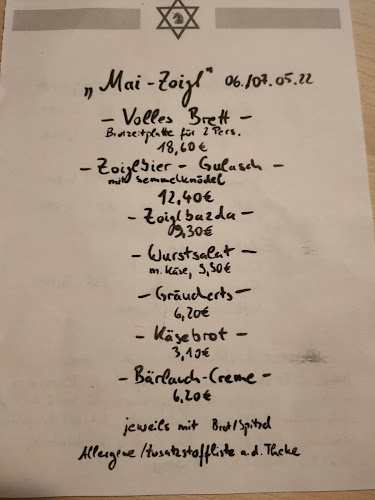 „Mai-Zoigl" 06./07.05.22
- Volles Brett -
Brotzeitplatte für 2 Pers.
18,60€
- Zoiglbier - Gulasch -
mit Semmelknödel
12,40€
- Zoiglbazda -
9,30€
- Wurstsalat -
m. Käse, 9,30€
- Gräucherts -
6,20€
- Käsebrot -
3,10€
- Bärlauch-Creme -
6,20€
jeweils mit Brot/Spitzel
Allergene/Zusatzstoffliste a.d. Theke